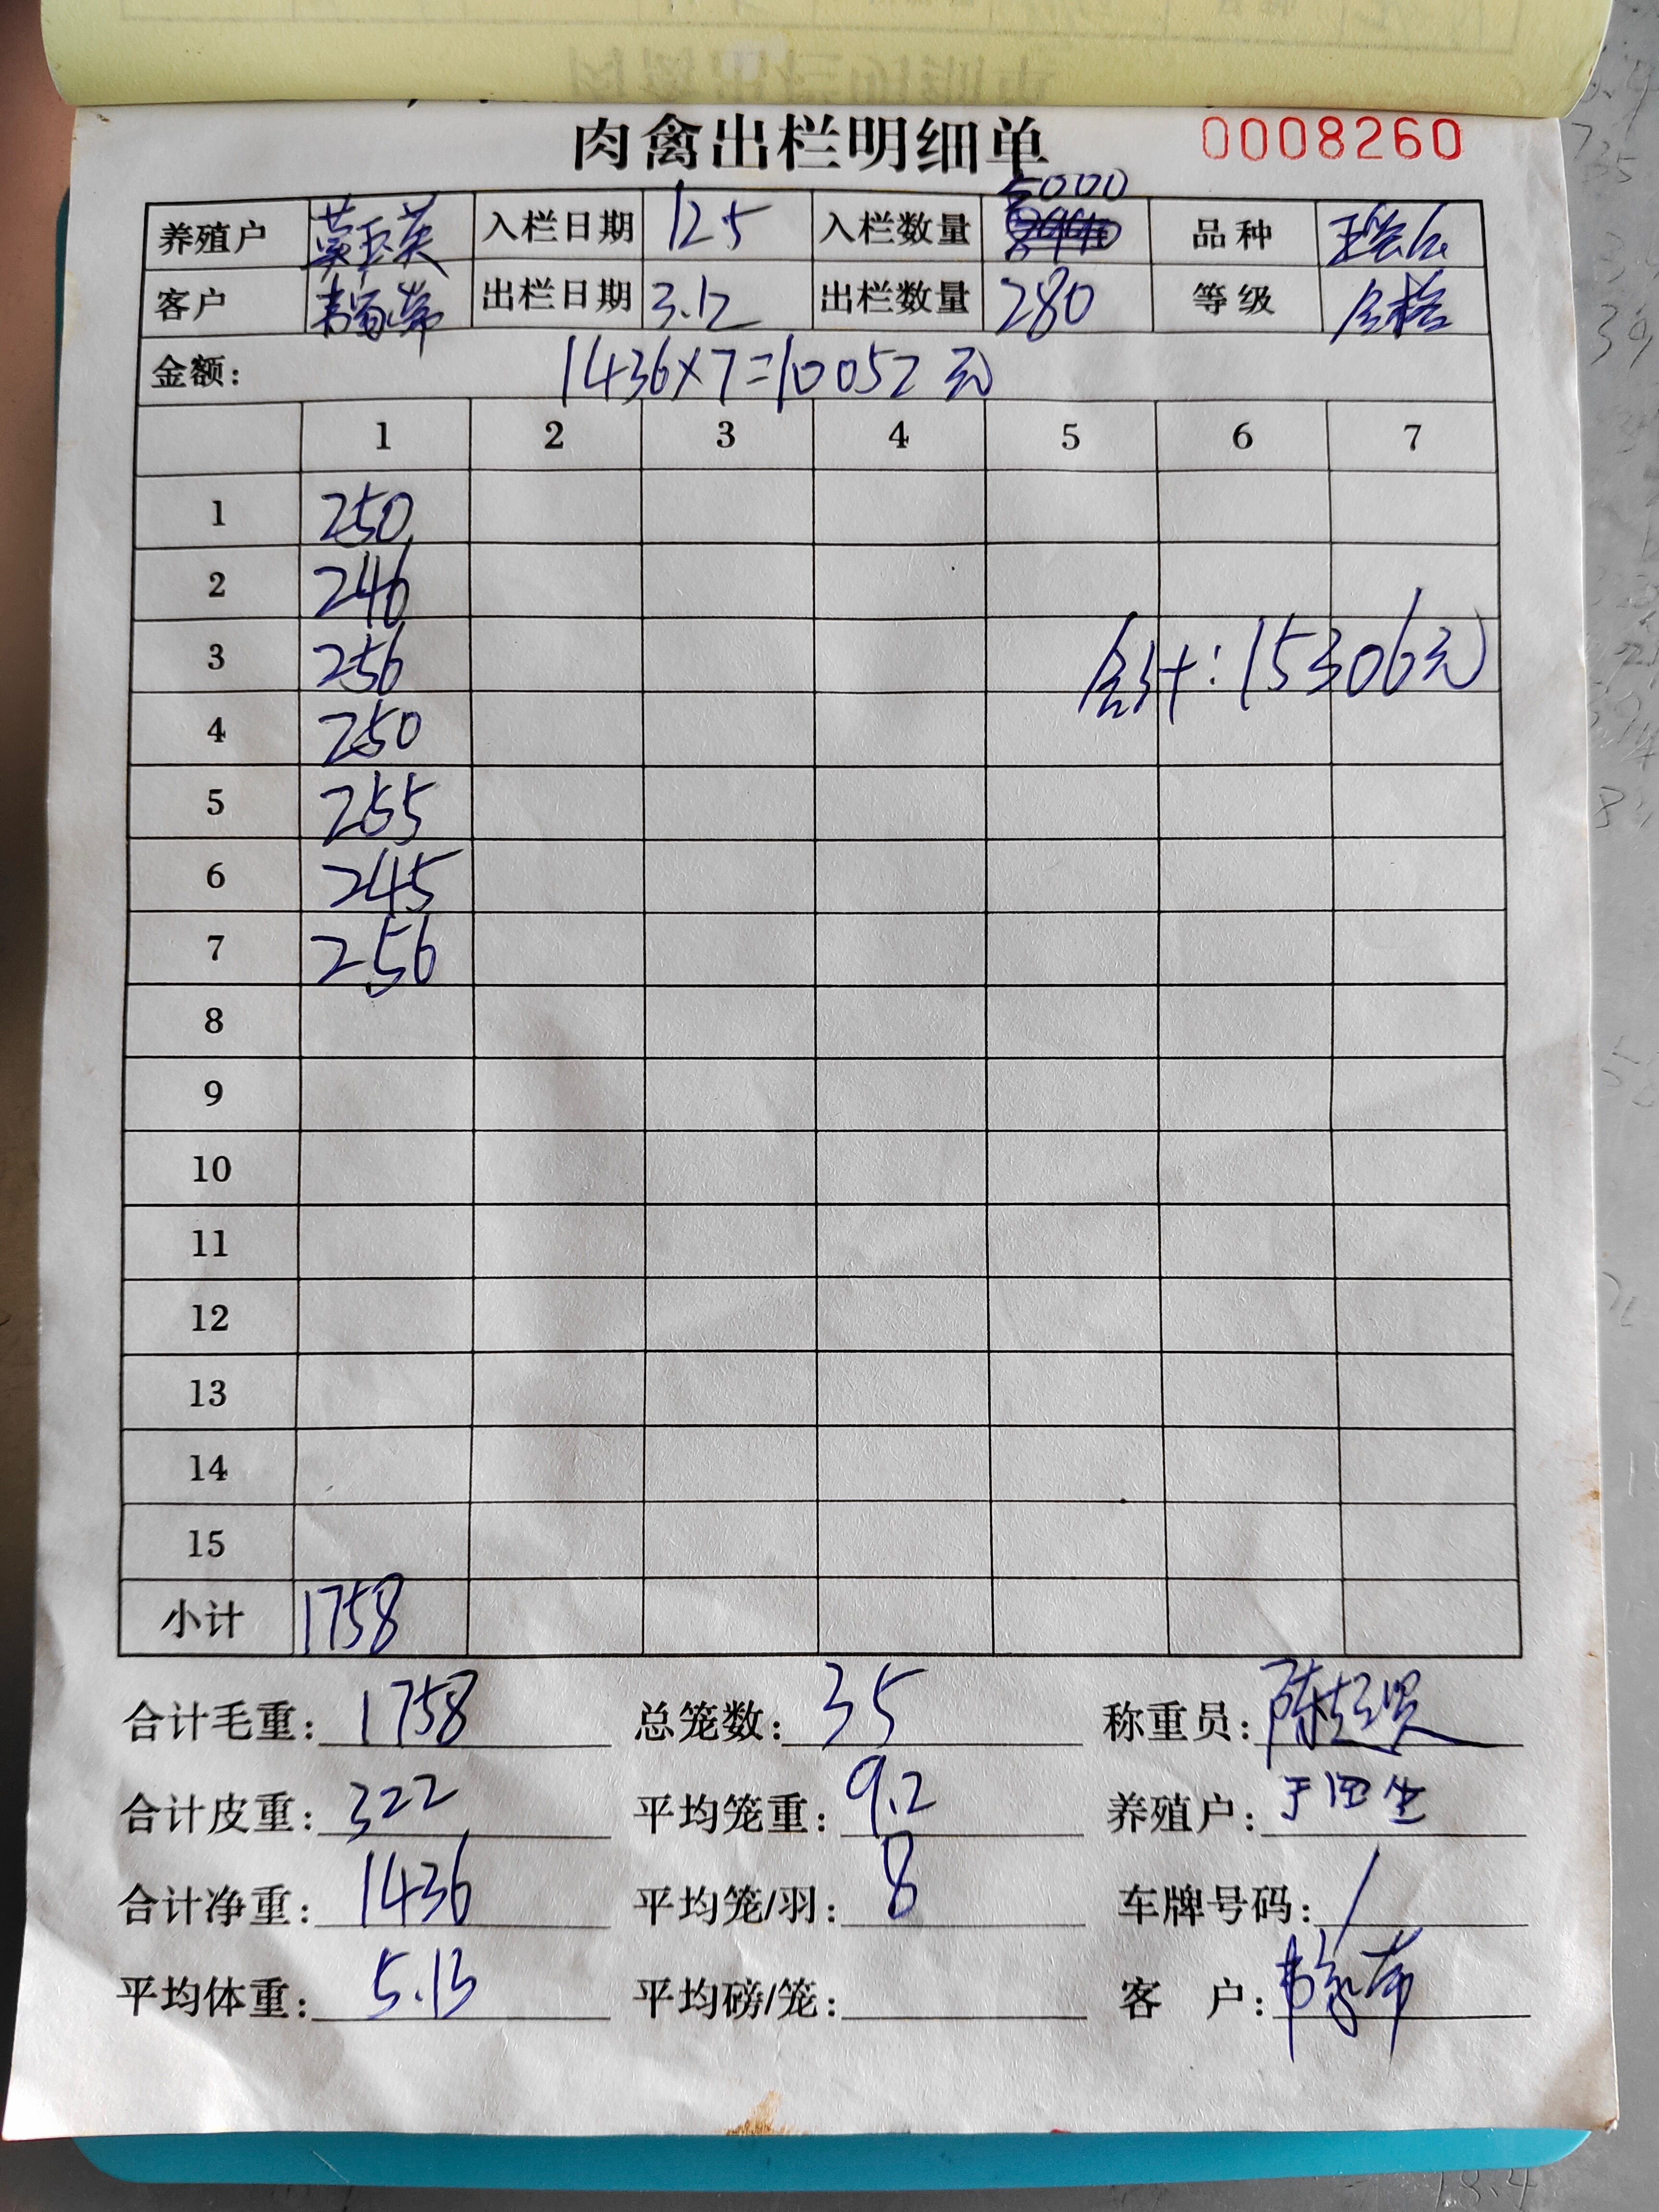 肉禽出栏明细单 0008260
养殖户 莫玉英 入栏日期 12.5 入栏数量 5000 品种
客户 出栏日期 3.12 出栏数量 280 等级 合格
金额: 1436×7=10052元
1 2 3 4 5 6 7
1 250
2 246
3 256 合计:15306元
4 250
5 255
6 245
7 256
8
9
10
11
12
13
14
15
小计 1758
合计毛重: 1758 总笼数: 35 称重员:
合计皮重: 322 平均笼重: 9.2 养殖户:
合计净重: 1436 平均笼/羽: 8 车牌号码: /
平均体重: 5.13 平均磅/笼: 客 户: